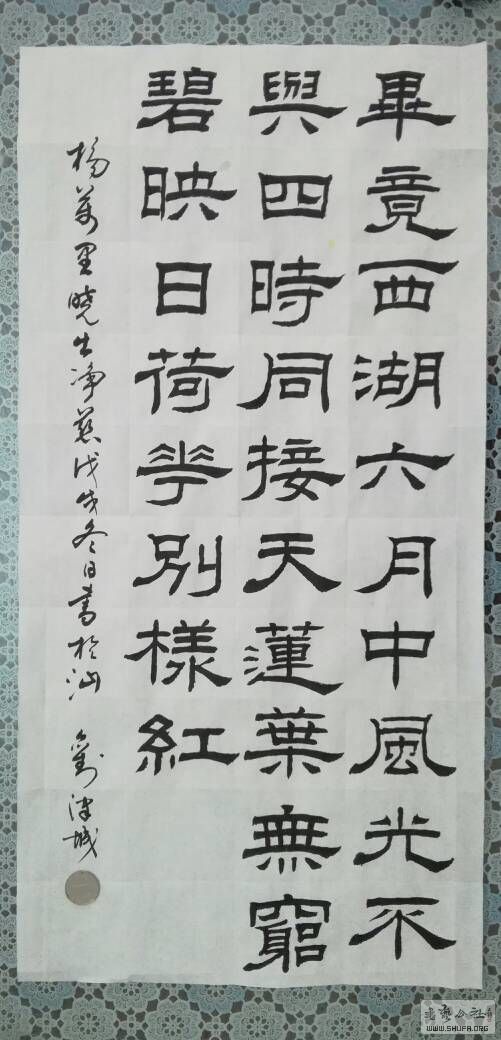 畢竟西湖六月中風光不
與四時同接天蓮葉無窮
碧映日荷花別樣紅
楊萬里曉出淨慈戊戌冬日書於汕
劉
城
WWW.SHUFA.ORG